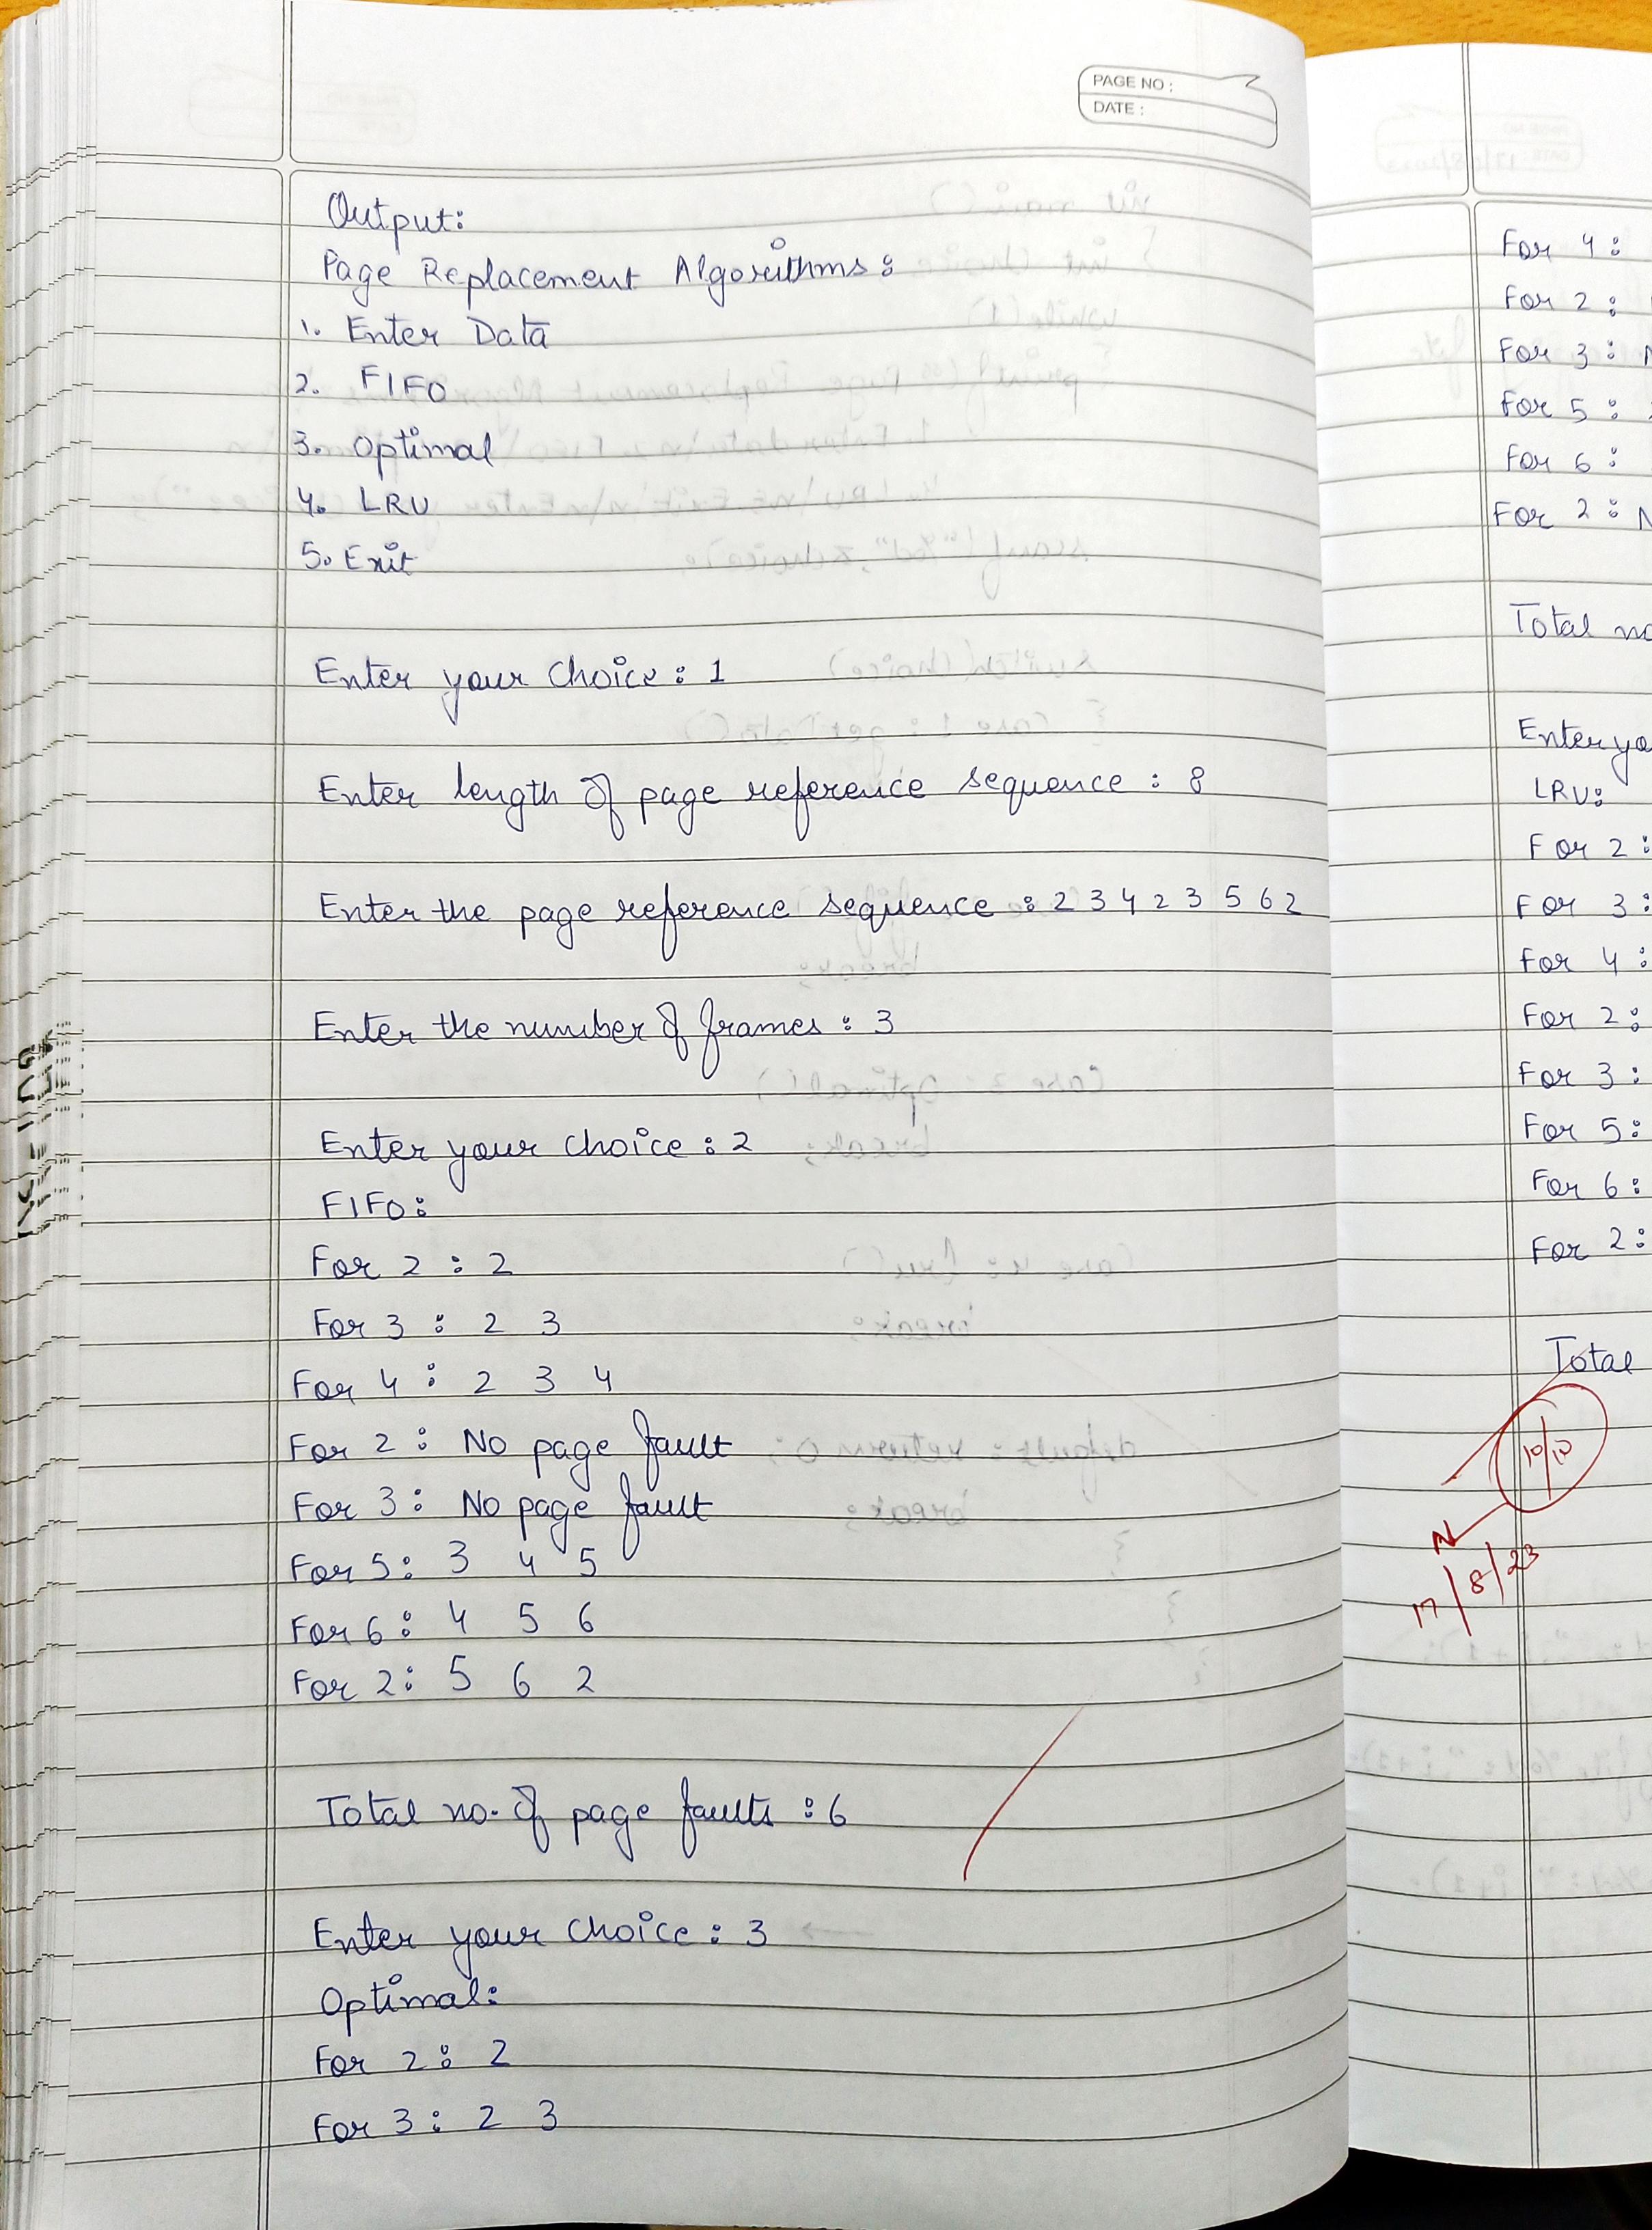 PAGE NO :
DATE :
Output:
Page Replacement Algorithms:
1. Enter Data
2. FIFO
3. Optimal
4. LRU
5. Exit
Enter your choice : 1
Enter length of page reference sequence : 8
Enter the page reference sequence : 2 3 4 2 3 5 6 2
Enter the number of frames : 3
Enter your choice : 2
FIFO:
For 2 : 2
For 3 : 2 3
For 4 : 2 3 4
For 2 : No page fault
For 3 : No page fault
For 5 : 3 4 5
For 6 : 4 5 6
For 2 : 5 6 2
Total no. of page faults : 6
Enter your choice : 3
Optimal:
For 2 : 2
For 3 : 2 3
For 4 :
For 2 :
For 3 : N
For 5 :
For 6 :
For 2 : N
Total no
Enter yo
LRU:
For 2 :
For 3 :
For 4 :
For 2 :
For 3 :
For 5 :
For 6 :
For 2 :
Total
10/10
N
17/8/23